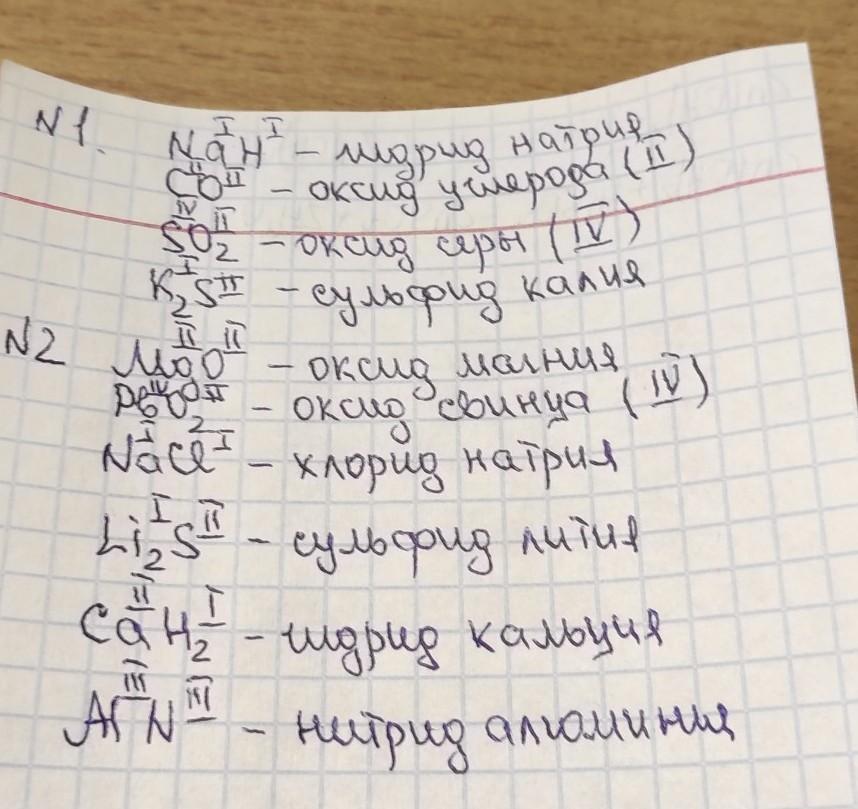 N1. NaᴵHᴵ – гидрид натрия
CᴵᴵOᴵᴵ – оксид углерода (II)
SᴵⱽO₂ᴵᴵ – оксид серы (IV)
K₂ᴵSᴵᴵ – сульфид калия
N2 MgᴵᴵOᴵᴵ – оксид магния
PbᴵⱽO₂ᴵᴵ – оксид свинца (IV)
NaᴵClᴵ – хлорид натрия
Li₂ᴵSᴵᴵ – сульфид лития
CaᴵᴵH₂ᴵ – гидрид кальция
AlᴵᴵᴵNᴵᴵᴵ – нитрид алюминия